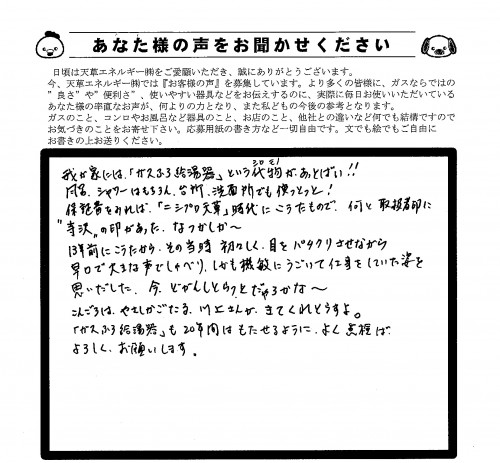 あなた様の声をお聞かせください
日頃は天草エネルギー㈱をご愛顧いただき、誠にありがとうございます。
今、天草エネルギー㈱では『お客様の声』を募集しています。より多くの皆様に、ガスならではの
”良さ”や”便利さ”、使いやすい器具などをお伝えするのに、実際に毎日お使いいただいている
あなた様の率直なお声が、何よりの力となり、また私どもの今後の参考となります。
ガスのこと、コンロやお風呂など器具のこと、お店のこと、他社との違いなど何でも結構ですので
お気づきのことをお寄せ下さい。応募用紙の書き方など一切自由です。文でも絵でもご自由に
お書きの上お送りください。
我が家には、「ガスふろ給湯器」という代物が、あっとばい!!
シロモノ
風呂、シャワーはもちろん、台所、洗面所でも使っとっと!
保証書をみれば、「ニシプロ天草」時代にこうたもので、何と取扱者印に
"寺沢"の印があった、なつかしか〜
13年前にこうたから、その当時初々しく、目をパタクリさせながら
早口で大きな声でしゃべり、しかも機敏にうごいて仕事をしていた姿を
思いだした。今、どがんしとらっとだろかな〜
こんごろは、やさしかごたる、川上さんが、きてくれとうすよ。
「ガスふろ給湯器」も20年間はもたせるように、よく点検ば
よろしく、お願いします。